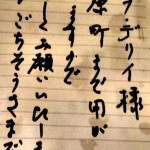 ・デリイ様
原町まで用が
ますので
しくお願いいたしま
ごちそうさまで